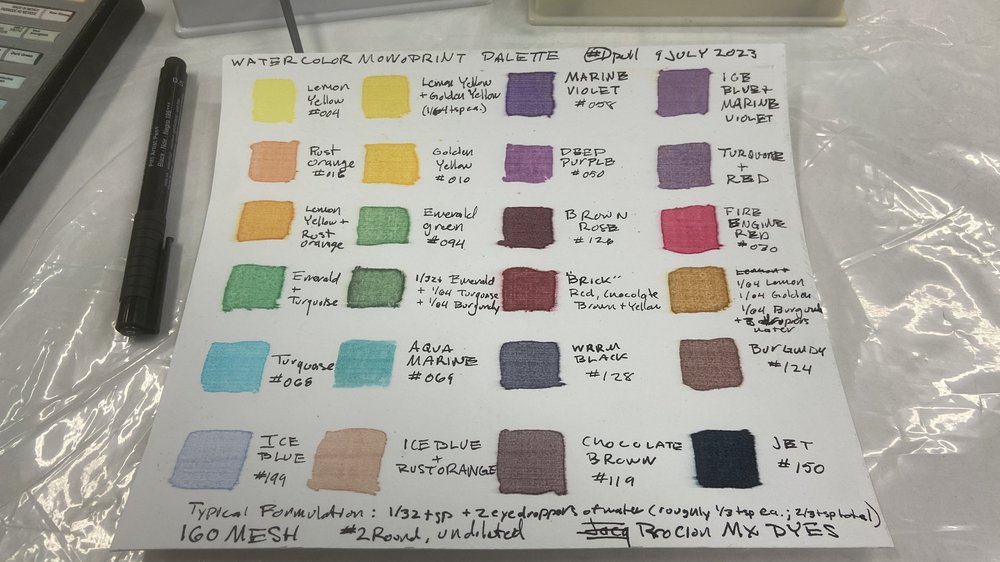 WATERCOLOR MONOPRINT PALETTE #1 pull 9 JULY 2023
Lemon
Yellow
#004
Lemon Yellow
+ Golden Yellow
(1/64 tsp ea.)
MARINE
VIOLET
#058
ICE
BLUE +
MARINE
VIOLET
Rust
Orange
#016
Golden
Yellow
#010
DEEP
PURPLE
#050
TURQUOISE
+
RED
Lemon
Yellow +
Rust
Orange
Emerald
green
#094
BROWN
ROSE
#126
FIRE
ENGINE
RED
#030
Emerald
+
Turquoise
1/32t Emerald
+ 1/64 Turquoise
+ 1/64 Burgundy
"BRICK"
Red, Chocolate
Brown + Yellow
1/64 Lemon
1/64 Golden
1/64 Burgundy
+ 3 droppers
water
Turquoise
#068
AQUA
MARINE
#069
WARM
BLACK
#128
BURGUNDY
#124
ICE
BLUE
#199
ICE BLUE
+
RUST ORANGE
CHOCOLATE
BROWN
#119
JET
#150
Typical Formulation: 1/32 tsp + 2 eyedroppers of water (roughly 1/3 tsp ea.; 2/3 tsp total)
160 MESH #2 Round, undiluted Procion MX DYES